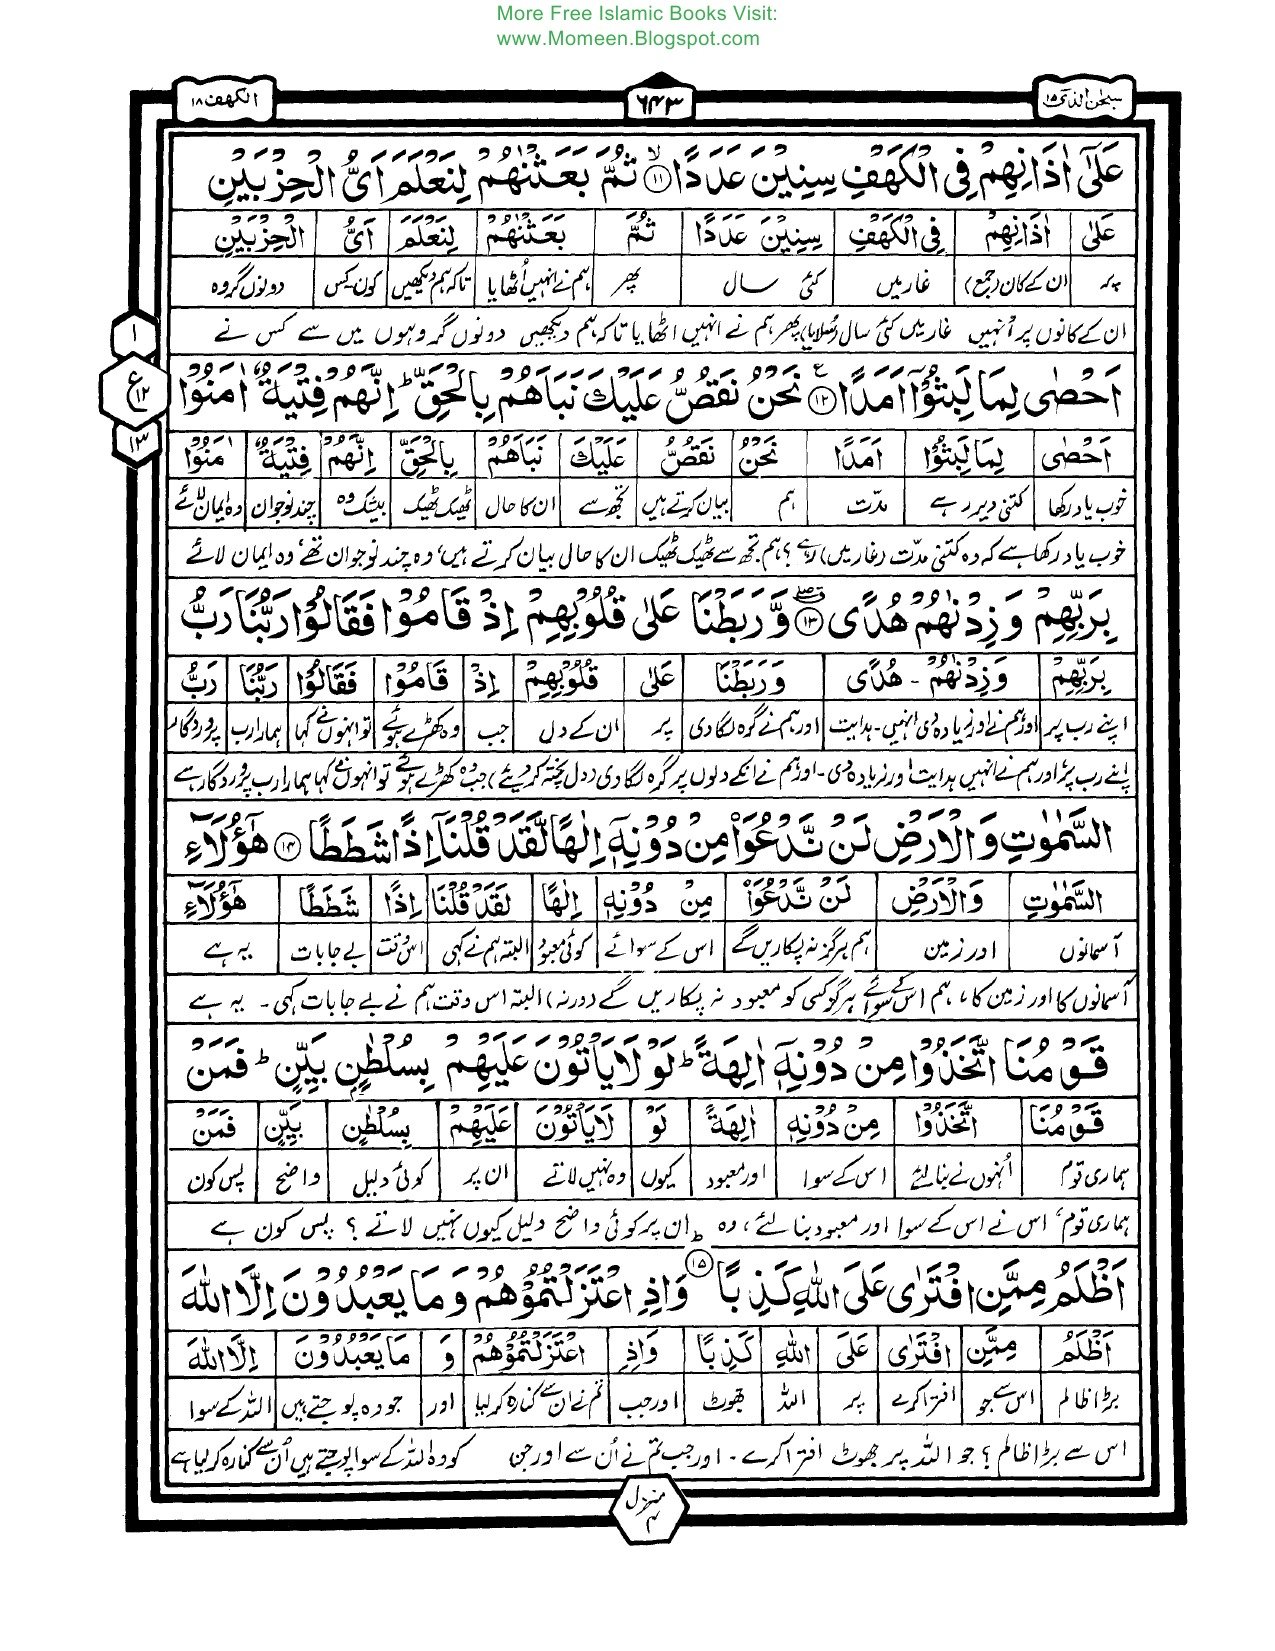 More Free Islamic Books Visit:
www.Momeen.Blogspot.com
سبحٰن الذی ۱۵
۶۴۳
الکہف ۱۸
عَلٰۤی اٰذَانِهِمْ فِی الْكَهْفِ سِنِیْنَ عَدَدًا ۱۱ ثُمَّ بَعَثْنٰهُمْ لِنَعْلَمَ اَیُّ الْحِزْبَیْنِ
عَلٰۤی اٰذَانِهِمْ فِی الْكَهْفِ سِنِیْنَ عَدَدًا ثُمَّ بَعَثْنٰهُمْ لِنَعْلَمَ اَیُّ الْحِزْبَیْنِ
پر ان کے کان (جمع) غار میں کئی سال پھر ہم نے انہیں اُٹھایا تاکہ ہم دیکھیں کون۔کس دونوں گروہ
ان کے کانوں پر اُنہیں غار میں کئی سال (سُلایا) پھر ہم نے انہیں اٹھایا تاکہ ہم دیکھیں دونوں گروہوں میں سے کس نے
۱
ع ۱۲
۱۳
اَحْصٰی لِمَا لَبِثُوْۤا اَمَدًا ۱۲ نَحْنُ نَقُصُّ عَلَیْكَ نَبَاَهُمْ بِالْحَقِّ ؕ اِنَّهُمْ فِتْیَةٌ اٰمَنُوْا
اَحْصٰی لِمَا لَبِثُوْۤا اَمَدًا نَحْنُ نَقُصُّ عَلَیْكَ نَبَاَهُمْ بِالْحَقِّ اِنَّهُمْ فِتْیَةٌ اٰمَنُوْا
خوب یاد رکھا کتنی دیر رہے مدّت ہم بیان کرتے ہیں تجھ سے ان کا حال ٹھیک ٹھیک بیشک وہ چند نوجوان وہ ایمان لائے
خوب یاد رکھا ہے کہ وہ کتنی مدّت (غار میں) رہے؟ ہم تجھ سے ٹھیک ٹھیک ان کا حال بیان کرتے ہیں، وہ چند نوجوان تھے، وہ ایمان لائے
بِرَبِّهِمْ وَ زِدْنٰهُمْ هُدًی ۱۳ وَّ رَبَطْنَا عَلٰی قُلُوْبِهِمْ اِذْ قَامُوْا فَقَالُوْا رَبُّنَا رَبُّ
بِرَبِّهِمْ وَزِدْنٰهُمْ - هُدًی وَرَبَطْنَا عَلٰی قُلُوْبِهِمْ اِذْ قَامُوْا فَقَالُوْا رَبُّنَا رَبُّ
اپنے رب پر اور ہم نے اور زیادہ دی انہیں۔ہدایت اور ہم نے گرہ لگا دی پر ان کے دل جب وہ کھڑے ہوئے تو انہوں نے کہا ہمارا رب پروردگار
اپنے رب پر اور ہم نے انہیں ہدایت اور زیادہ دی۔ اور ہم نے انکے دلوں پر گرہ لگا دی (دل پختہ کر دیئے) جب وہ کھڑے ہوئے تو انہوں نے کہا ہمارا رب پروردگار ہے
السَّمٰوٰتِ وَالْاَرْضِ لَنْ نَّدْعُوَا۟ مِنْ دُوْنِهٖۤ اِلٰهًا لَّقَدْ قُلْنَاۤ اِذًا شَطَطًا ۱۴ هٰۤؤُلَآءِ
السَّمٰوٰتِ وَالْاَرْضِ لَنْ نَّدْعُوَا۟ مِنْ دُوْنِهٖۤ اِلٰهًا لَقَدْ قُلْنَا اِذًا شَطَطًا هٰۤؤُلَآءِ
آسمانوں اور زمین ہم ہرگز نہ پکاریں گے اس کے سوائے کوئی معبود البتہ ہم نے کہی اس وقت بے جا بات یہ ہے
آسمانوں کا اور زمین کا، ہم اس کے سوائے ہرگز کسی کو معبود نہ پکاریں گے (ورنہ) البتہ اس وقت ہم نے بے جا بات کہی۔ یہ ہے
قَوْمُنَا اتَّخَذُوْا مِنْ دُوْنِهٖۤ اٰلِهَةً ؕ لَوْ لَا یَاْتُوْنَ عَلَیْهِمْ بِسُلْطٰنٍ بَیِّنٍ ؕ فَمَنْ
قَوْمُنَا اتَّخَذُوْا مِنْ دُوْنِهٖۤ اٰلِهَةً لَوْ لَا یَاْتُوْنَ عَلَیْهِمْ بِسُلْطٰنٍ بَیِّنٍ فَمَنْ
ہماری قوم اُنہوں نے بنا لئے اس کے سوا اور معبود کیوں وہ نہیں لاتے ان پر کوئی دلیل واضح پس کون
ہماری قوم، اس نے اس کے سوا اور معبود بنا لئے، وہ ان پر کوئی واضح دلیل کیوں نہیں لاتے؟ پس کون ہے
اَظْلَمُ مِمَّنِ افْتَرٰی عَلَی اللّٰهِ كَذِبًا ۱۵ وَاِذِ اعْتَزَلْتُمُوْهُمْ وَمَا یَعْبُدُوْنَ اِلَّا اللّٰهَ
اَظْلَمُ مِمَّنِ افْتَرٰی عَلَی اللّٰهِ كَذِبًا وَاِذِ اعْتَزَلْتُمُوْهُمْ وَ مَا یَعْبُدُوْنَ اِلَّا اللّٰهَ
بڑا ظالم اس سے جو افترا کرے پر اللہ جھوٹ اور جب تم نے ان سے کنارہ کر لیا اور جو وہ پوجتے ہیں اللہ کے سوا
اس سے بڑا ظالم؟ جو اللہ پر جھوٹ افترا کرے۔ اور جب تم نے اُن سے اور جن کو وہ اللہ کے سوا پوجتے ہیں اُن سے کنارہ کر لیا ہے
منزل ۴